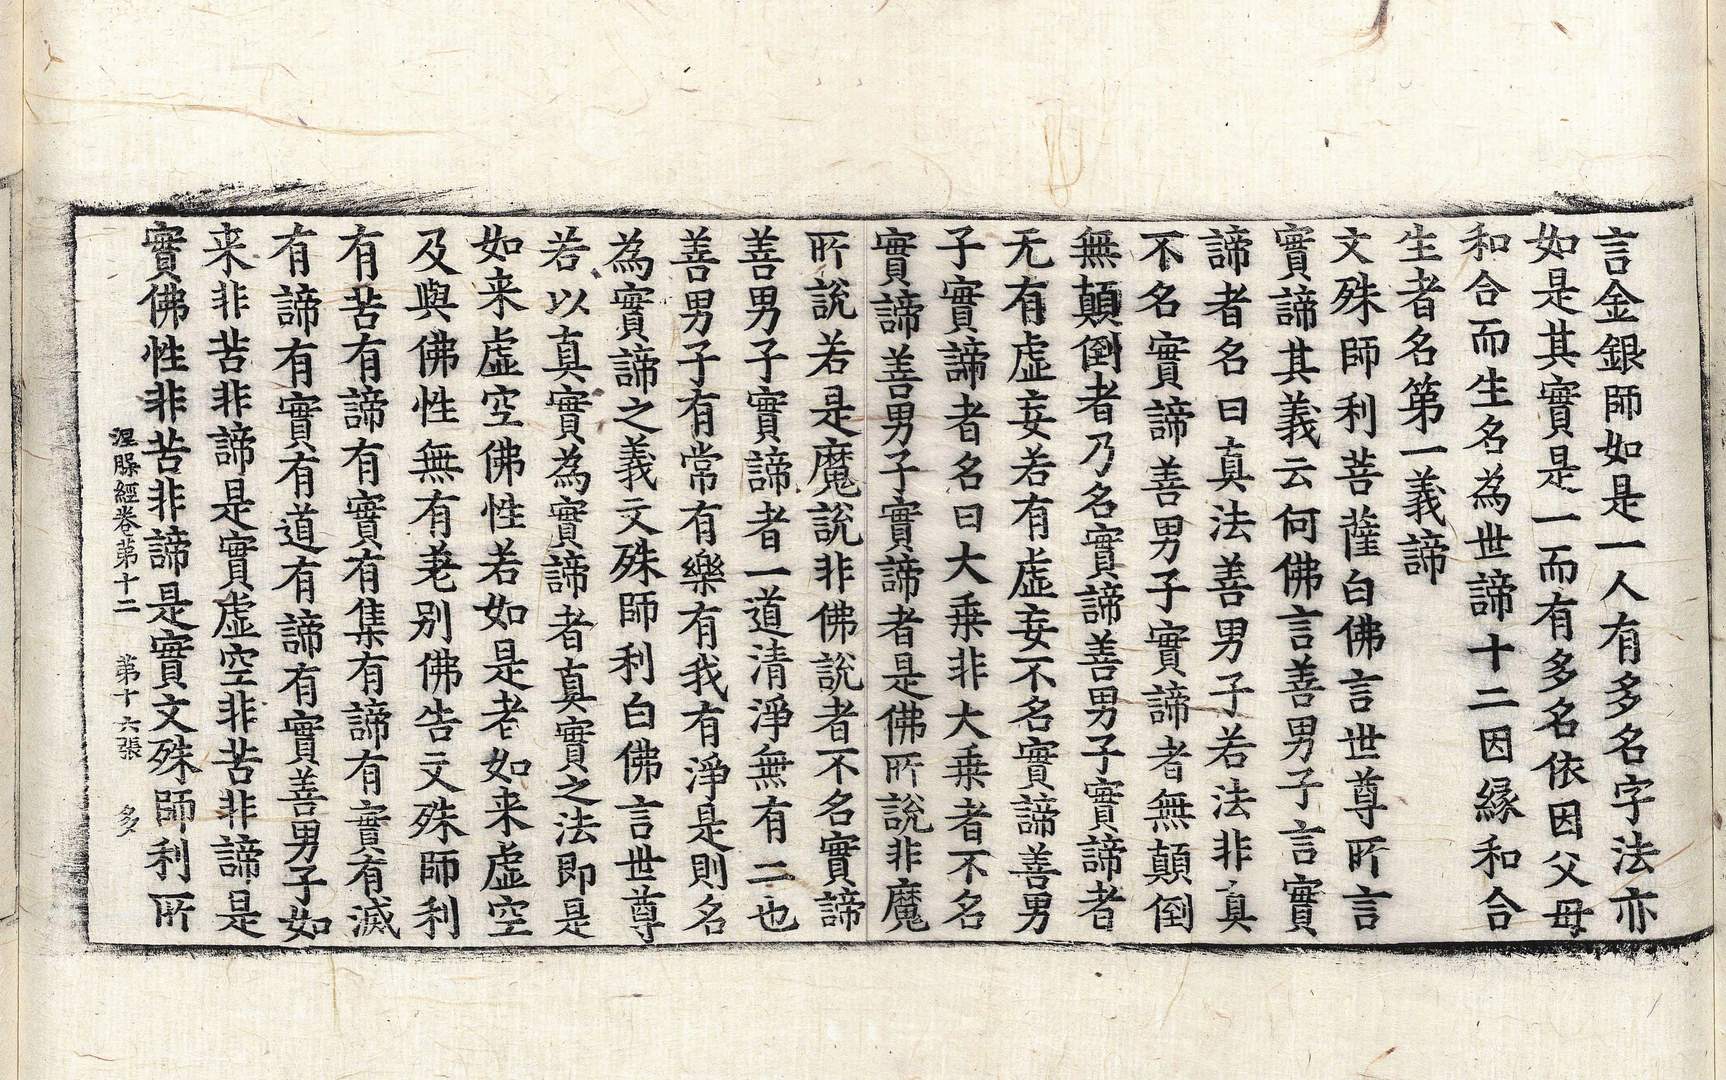 言金銀師如是一人有多名字法亦
如是其實是一而有多名依因父母
和合而生名為世諦十二因緣和合
生者名第一義諦
文殊師利菩薩白佛言世尊所言
實諦其義云何佛言善男子言實
諦者名曰真法善男子若法非真
不名實諦善男子實諦者無顛倒
無顛倒者乃名實諦善男子實諦者
无有虛妄若有虛妄不名實諦善男
子實諦者名曰大乘非大乘者不名
實諦善男子實諦者是佛所說非魔
所說若是魔說非佛說者不名實諦
善男子實諦者一道清淨無有二也
善男子有常有樂有我有淨是則名
為實諦之義文殊師利白佛言世尊
若以真實為實諦者真實之法即是
如来虛空佛性若如是者如来虛空
及與佛性無有差别佛告文殊師利
有苦有諦有實有集有諦有實有滅
有諦有實有道有諦有實善男子如
来非苦非諦是實虛空非苦非諦是
實佛性非苦非諦是實文殊師利所
涅槃經卷第十二 第十六張 多